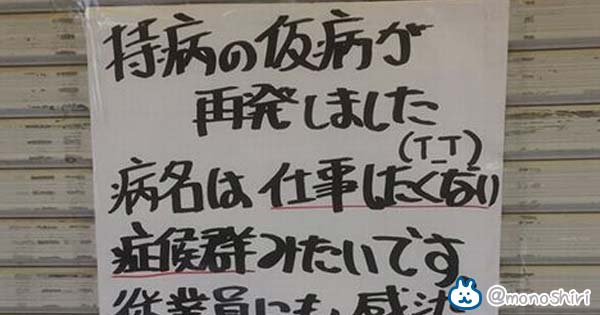 持病の仮病が
再発しました
(T_T)
病名は仕事したくない
症候群みたいです
従業員にも感染
@monoshiri